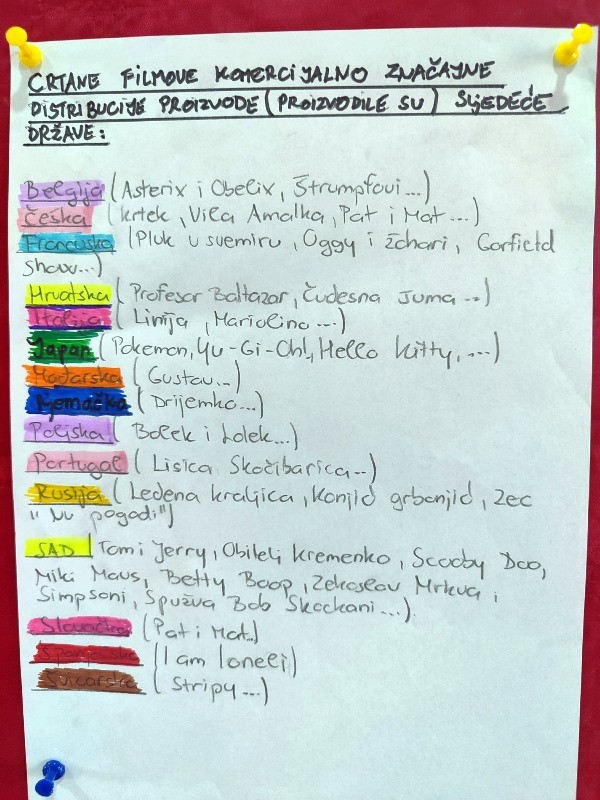 CRTANE FILMOVE KOMERCIJALNO ZNAČAJNE
DISTRIBUCIJE PROIZVODE (PROIZVODILE SU) SLJEDEĆE
DRŽAVE:
Belgija (Asterix i Obelix, Štrumpfovi...)
Češka (Krtek, Vila Amalka, Pat i Mat...)
Francuska (Pluk u svemiru, Oggy i žohari, Garfield
show...)
Hrvatska (Profesor Baltazar, Čudesna šuma...)
Italija (Linija, Mariolino...)
Japan (Pokemon, Yu-Gi-Oh!, Hello Kitty,...)
Mađarska (Gustav...)
Njemačka (Drijemko...)
Poljska (Bolek i Lolek...)
Portugal (Lisica Skočibarica...)
Rusija (Ledena kraljica, Konjić grbonjić, Zec
"Nu pogodi")
SAD (Tom i Jerry, Obitelj Kremenko, Scooby Doo,
Miki Maus, Betty Boop, Zekoslav Mrkva i
Simpsoni, Spužva Bob Skockani...).
Slovačka (Pat i Mat...)
Španjolska (I am loneli)
Švicarska (Stripy...)